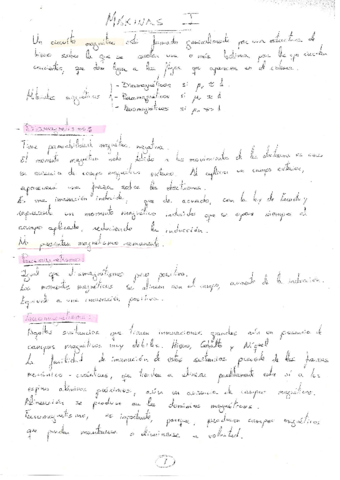 MÁQUINAS I
Un circuito magnético está formado generalmente por una estructura de
hierro sobre la que se arrollan una o más bobinas por las que circulan
corrientes, que dan lugar a los flujos que aparecen en el sistema.
- Diamagnéticos si μr ≈ 1.
Materiales magnéticos - Paramagnéticos si μr ≈ 1
- Ferromagnéticos si μr >> 1
- Diamagnetismo
Tiene permeabilidad magnética negativa.
El momento magnético debido a los movimientos de los electrones es cero
en ausencia de campo magnético externo. Al aplicar un campo externo,
aparecerá una fuerza sobre los electrones.
Es una imanación inducida, que de acuerdo, con la ley de Faraday y
representa un momento magnético inducido que se opone siempre al
campo aplicado, reduciendo la inducción.
No presenta magnetismo remanente.
- Paramagnetismo
Igual que el diamagnetismo pero positivo.
Los momentos magnéticos se alinean con el campo, aumento de la inducción.
Equivale a una imanación positiva.
- Ferromagnetismo
Aquellas sustancias que tienen imanaciones grandes aún en presencia de
campos magnéticos muy débiles. Hierro, Cobalto y Níquel.
La facilidad de imanación de estas sustancias procede de las fuerzas
mecánico-cuánticas, que tienden a alinear paralelamente entre sí a los
espines atómicos, aún en ausencia de campo magnético.
Alineación se produce en los dominios magnéticos.
Ferromagnetismo, es importante, porque, producen campos magnéticos
que pueden mantenerse o eliminarse a voluntad.
1